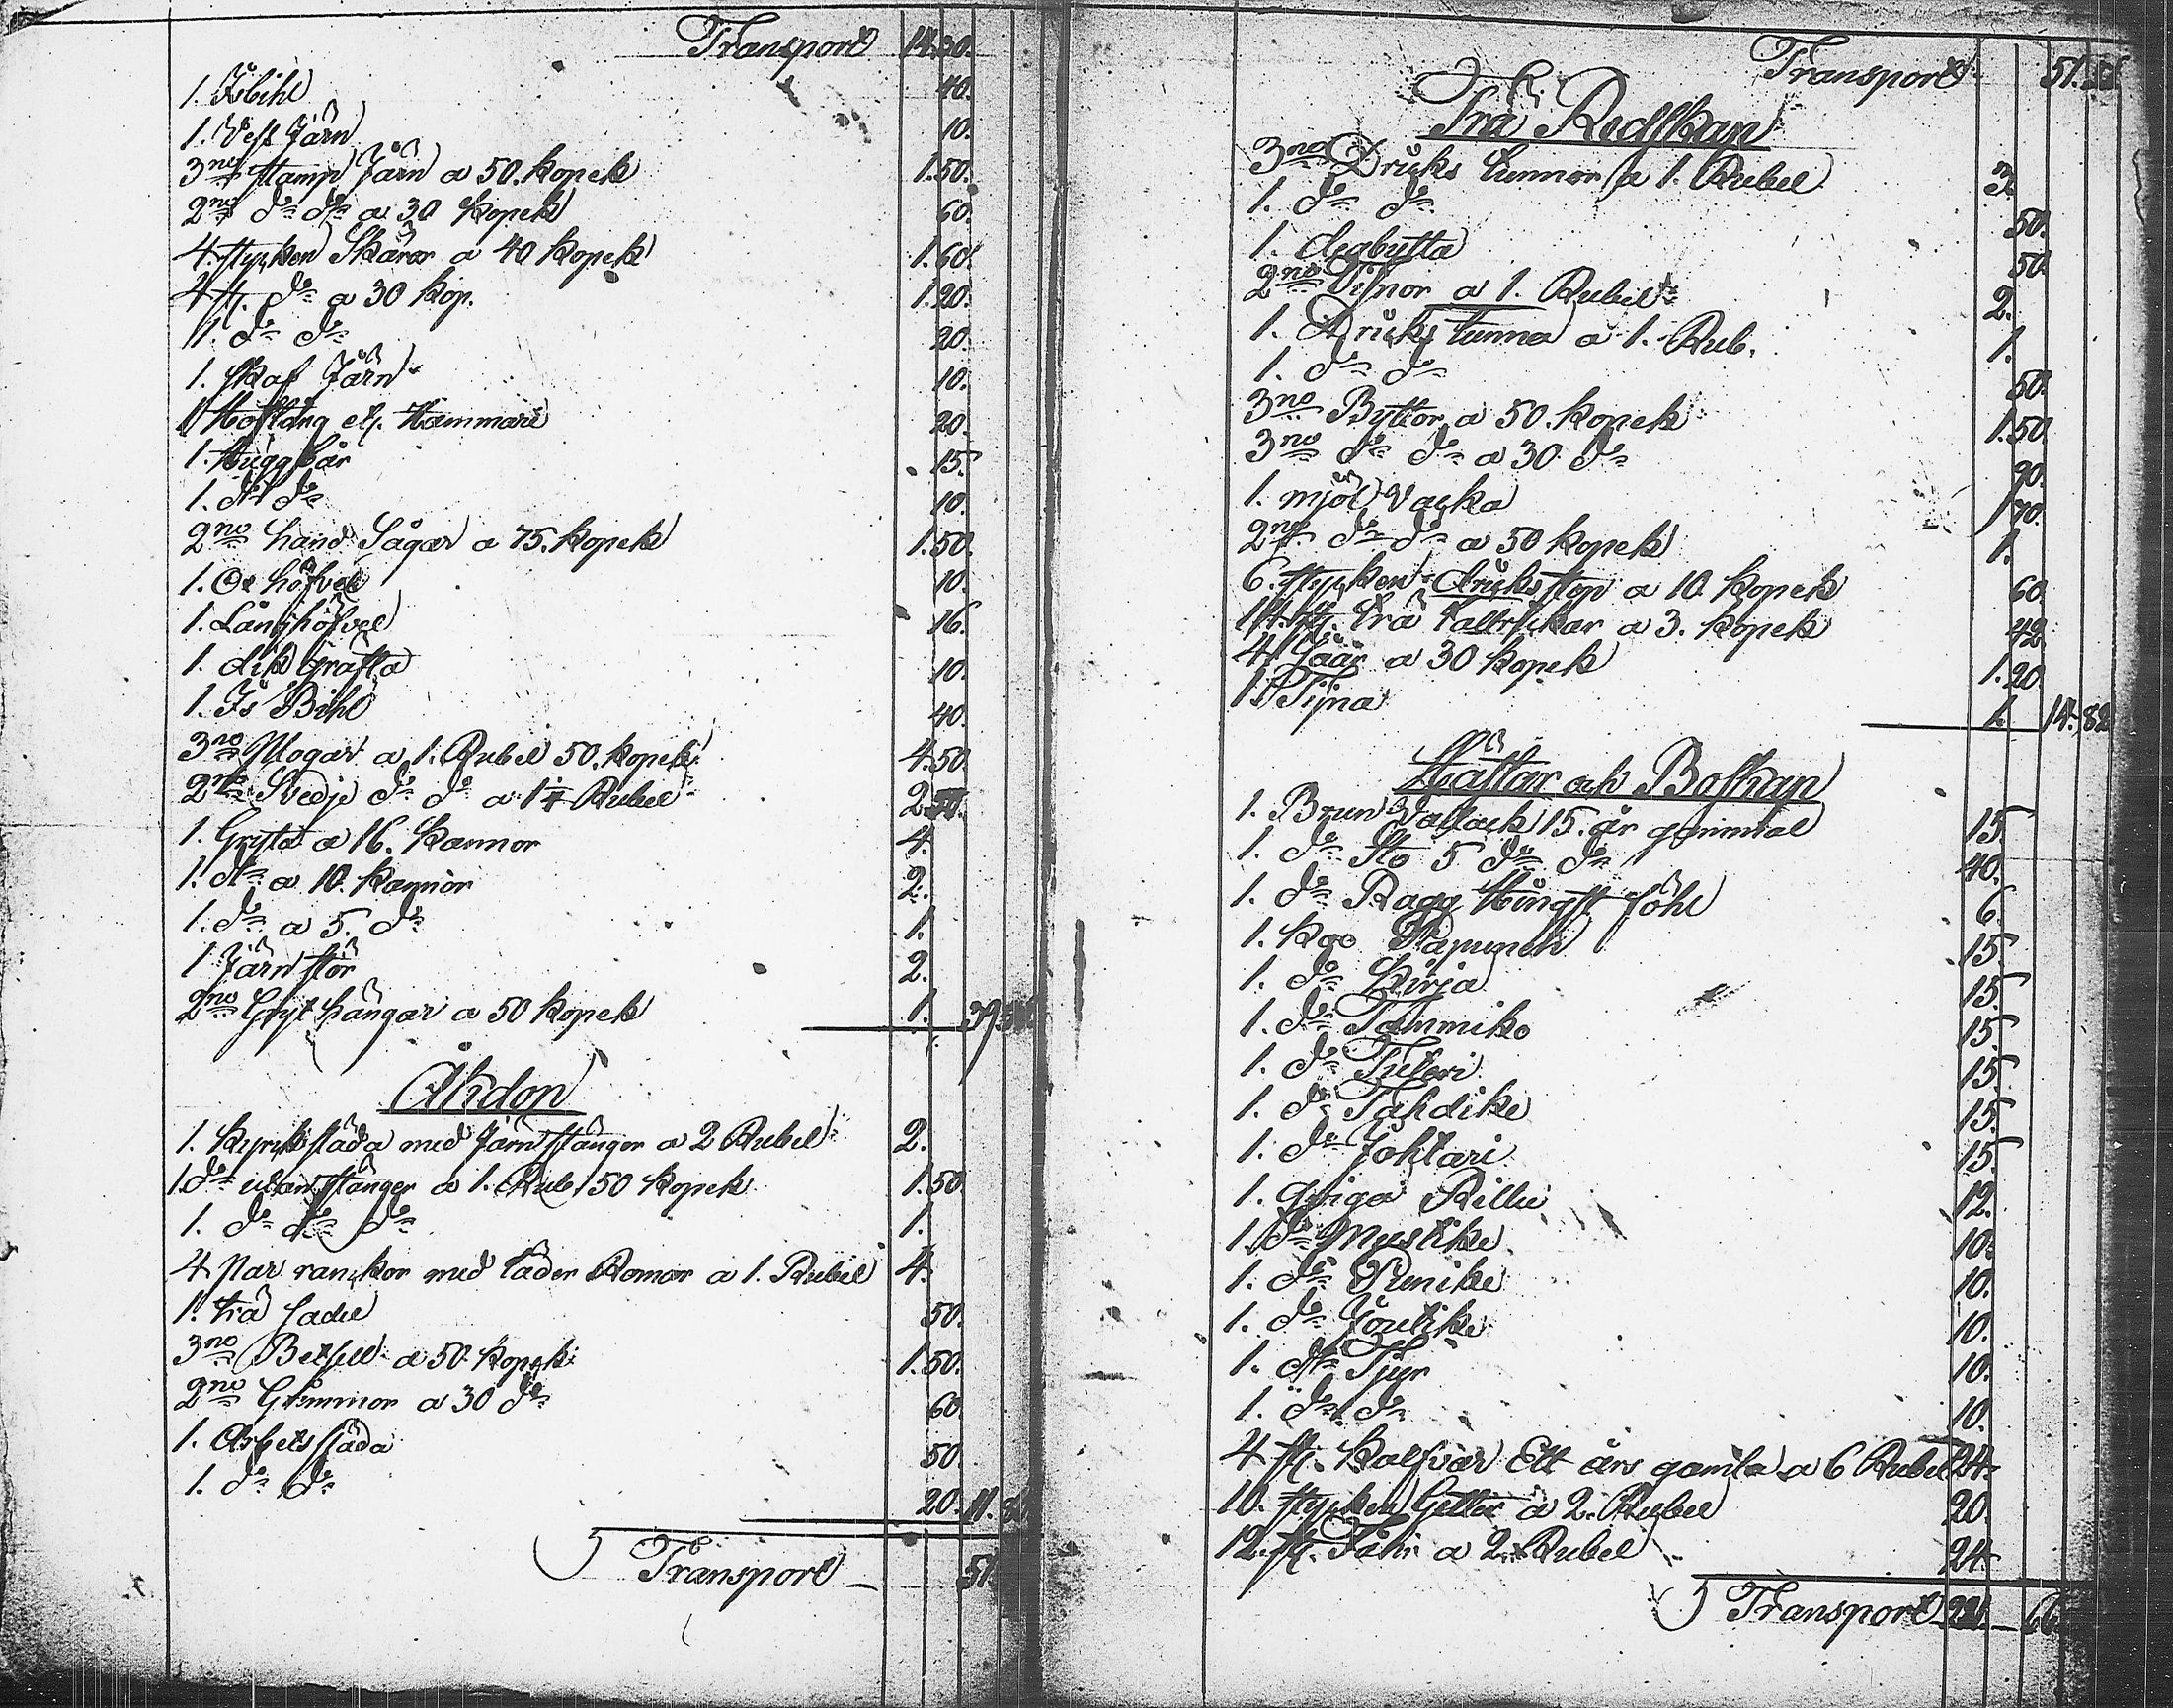 Transport 14.00.
1. Isbihl 40.
1. Vefs Järn 10.
3no Stamp Järn a 50. kopek 1.50.
2no do do a 30 kopek 60.
4 stycken Skäror a 40 kopek 1.60.
4 st. do a 30 kop. 1.20.
1. do do 20.
1. skaf Järn 10.
1 Hoftång et. Hammare 20.
1. Huggbår 15.
1. do do 10.
2no hand Sågar a 75. kopek 1.50.
1. Ox höfvel 10.
1. Långhöfvel 16.
1. dik Gräfta 10.
1. Is Bihl 40.
3no Plogar a 1. Rubel 50. kopek 4.50.
2no Svedje do do a 1¼ Rubel 2.50.
1. Gryta a 16. kannor 4.
1. do a 10. kannor 2.
1. do a 5. do 1.
1 Järn stör 2.
2no Gryt hängar a 50 kopek 1. 39.
Åkdon
1. kyrk släda med Järn stänger a 2 Rubel 2.
1. do utan stänger a 1. Rub. 50 kopek 1.50.
1. do do do 1.
4 Par rankor med läder Romor a 1. Rubel 4.
1. trä sadel 50.
3no Betsel a 50 kopek 1.50.
2no Grimmor a 30 do 60.
1. Arbets släda 50
1. do do 20. 11.80
Transport 51.
Transport 51.
Trä Redskap
3no Dricks tunnor a 1. Rubel 3.
1. do do 50.
1. degbytta 50.
2no Tijnor a 1. Rubel 2.
1. Dricks tunna a 1. Rub. 1.
1. do do 50.
3no Byttor a 50. kopek 1.50
3no do do a 30 do 90.
1. mjöl Vacka 70.
2no do do a 50 kopek 1.
6. stycken dricks stop a 10. kopek 60.
14. st. trä Taltrickar a 3. kopek 42.
4 Såår a 30 kopek 1.20
1 Tijna 1. 14.82
Hästar och Boskap
1. Brun Vallack 15. år gammal 15.
1. do Sto 5 do do 40.
1. do Ragg Hingst föhl 6.
1. koo Papuneh 15.
1. do Kirja 15.
1. do Tammiko 15.
1. do Tuteri 15.
1. do Tähdike 15.
1. do Johtari 15.
1. qviga Rillu 12.
1. do Mustike 10.
1. do Punike 10.
1. do Joutike 10.
1. do Tjur 10.
1. do do 10.
4 st. kalfvar Ett års gamla a 6 Rubel 24.
10. stycken Getter a 2. Rubel 20.
12. st. Fåhr a 2 Rubel 24
Transport 66